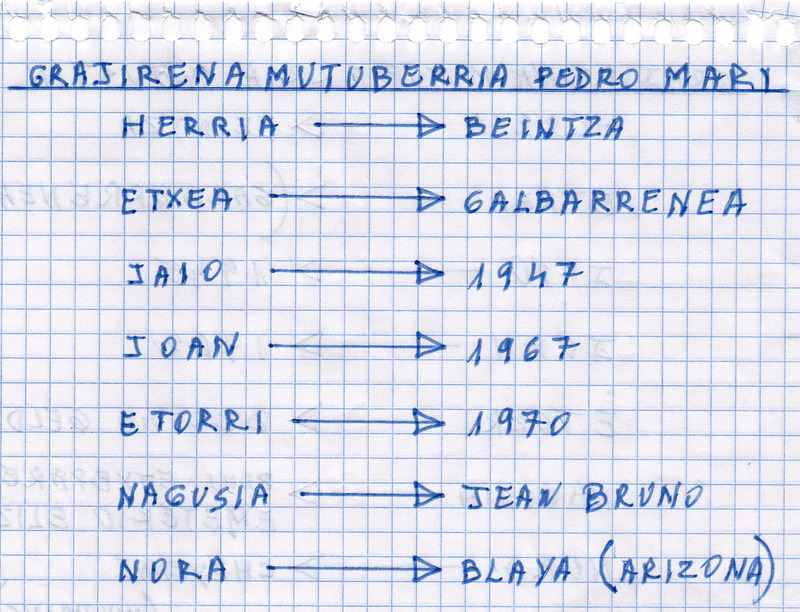 GRAJIRENA MUTUBERRIA PEDRO MARI
HERRIA → BEINTZA
ETXEA → GALBARRENEA
JAIO → 1947
JOAN → 1967
ETORRI → 1970
NAGUSIA → JEAN BRUNO
NORA → BLAYA (ARIZONA)